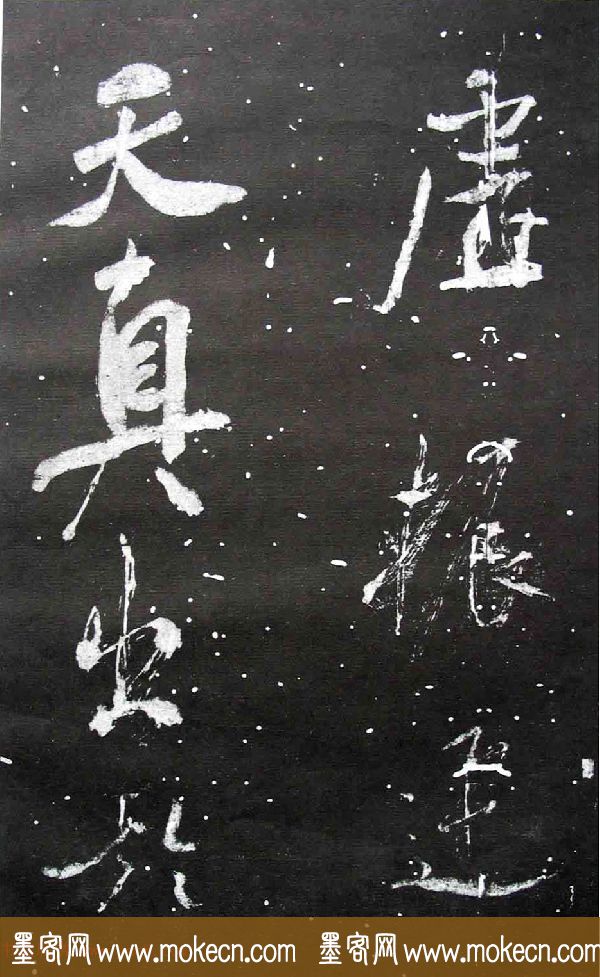 虛
天真出於
墨客网 www.mokecn.com 墨客网 www.mokecn.com